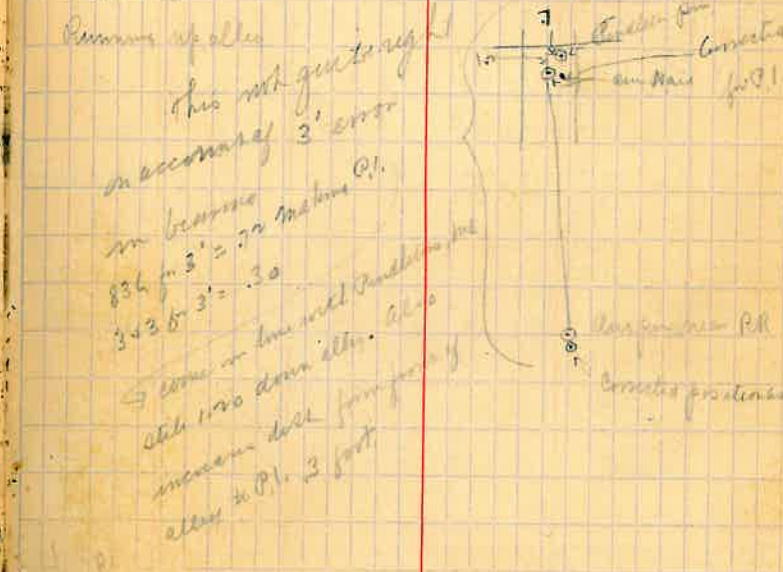 Running up alley
This not quite right
on account of 3' error
in bearing
836 for 3' = .72 making P.I.
343 for 3' = .30
come in line with Pendleton
still down alley. Also
increase dist from
alley to P.I. .3 foot
Pendleton pin
Correction
for P.I.
our Nail
Our pin near R.R.
Corrected position